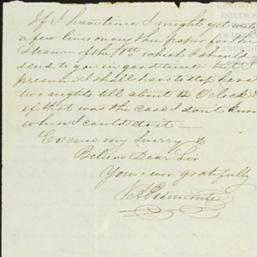 If I have time I might yet write
a few lines more on this paper for the
Steamer of the 9th which I should
send to you in good time: but
present I shall have to stop here
two nights till about 12 O'clock &
if that was the case I don't know
when I could do it —
Excuse my hurry &
Believe Dear Sir
Yours ever gratefully